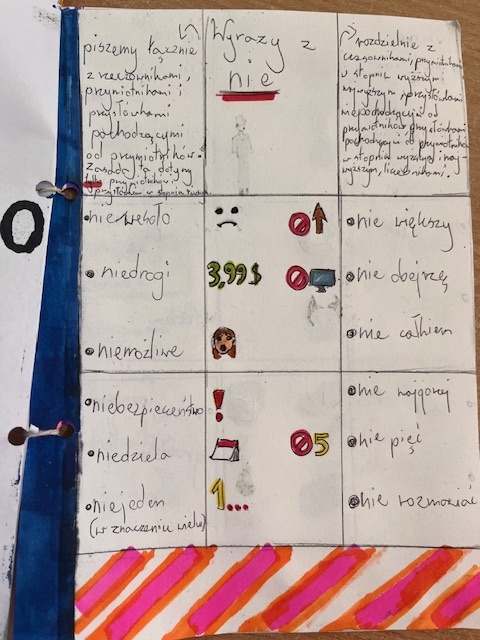 O
piszemy łącznie
z rzeczownikami,
przymiotnikami i
przysłówkami
pochodzącymi
od przymiotników.
Zasada ta dotyczy
tylko przymiotników i
przysłówków w stopniu
Wyrazy z
nie
rozdzielnie z
czasownikami, przymiotnikami
w stopniu wyższym i
najwyższym, przysłówkami
niepochodzącymi od
przymiotników, przysłówkami
pochodzącymi od przymiotników
w stopniu wyższym i naj-
wyższym, liczebnikami.
niewesoło
nie większy
niedrogi
3,99$
nie obejrzę
niemożliwe
nie całkiem
niebezpieczeństwo
!
nie najgorzej
niedziela
5
nie pięć
niejeden
(w znaczeniu wielu)
1...
nie rozmawiać